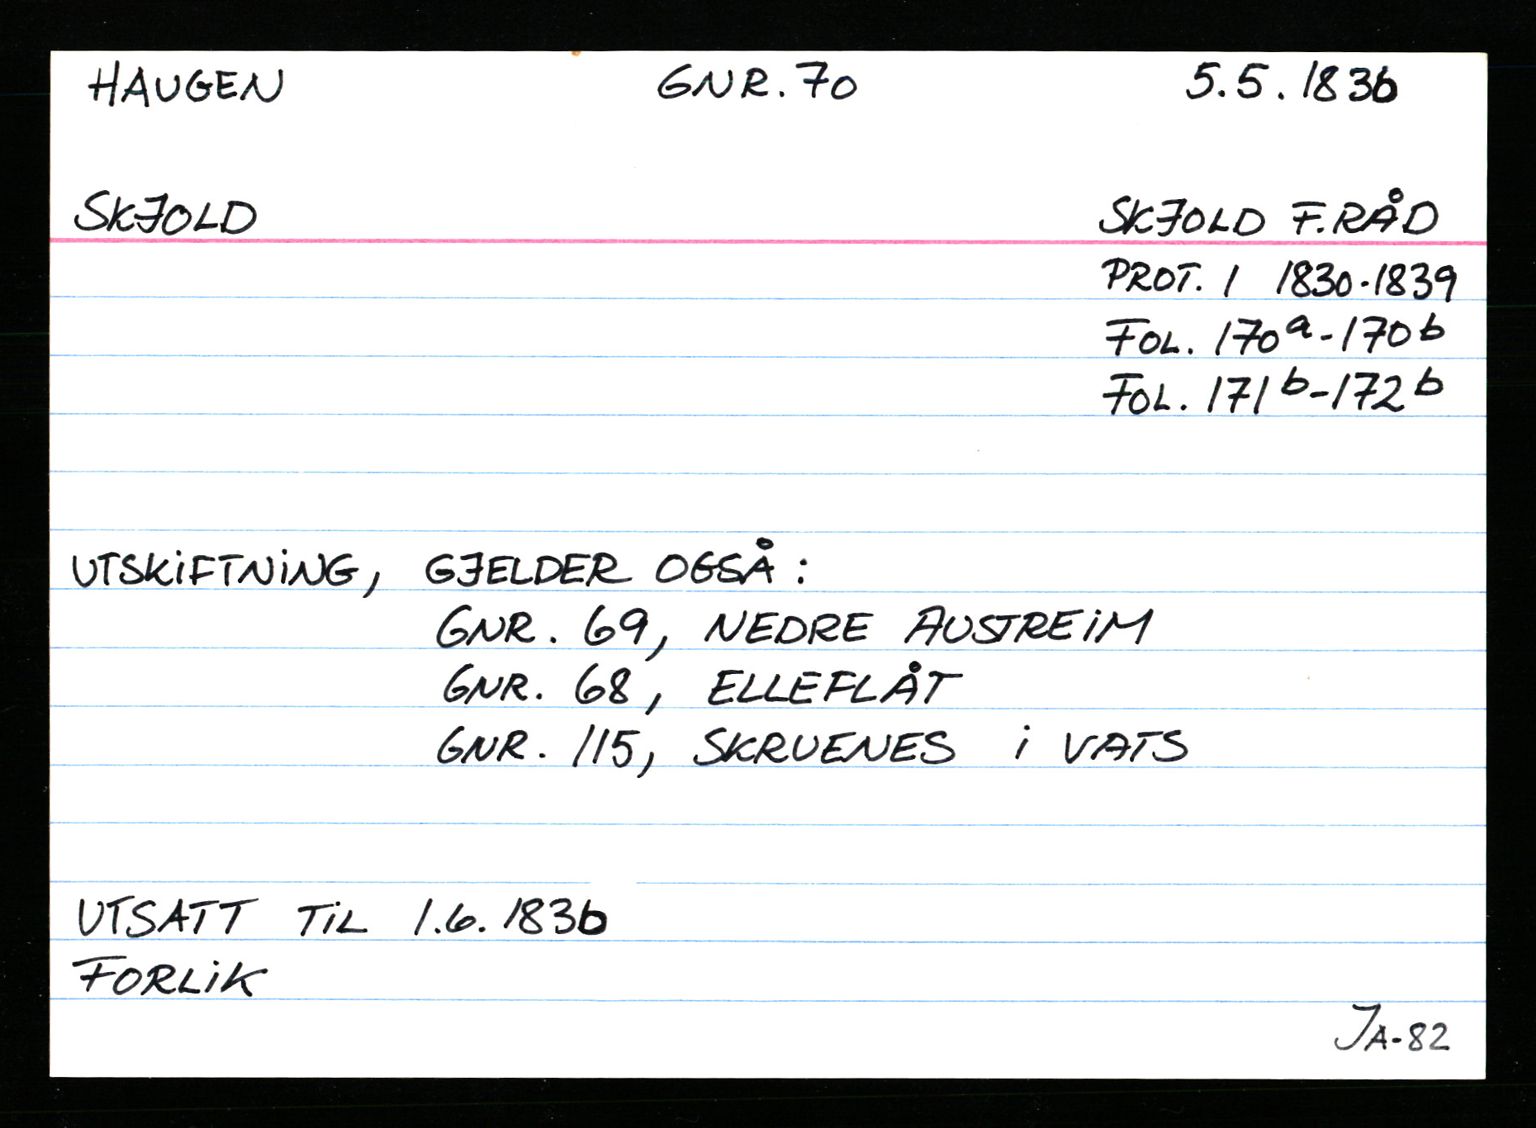 HAUGEN GNR. 70 5.5.1836
SKJOLD SKJOLD F.RÅD
PROT. 1 1830-1839
FOL. 170a-170b
FOL. 171b-172b
UTSKIFTNING, GJELDER OGSÅ:
GNR. 69, NEDRE AUSTREIM
GNR. 68, ELLEFLÅT
GNR. 115, SKRUENES I VATS
UTSATT TIL 1.6.1836
FORLIK
JA-82